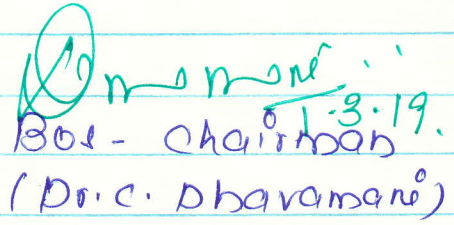 1.3.19.
BOS - Chairman
(Dr. C. Dhavamani)